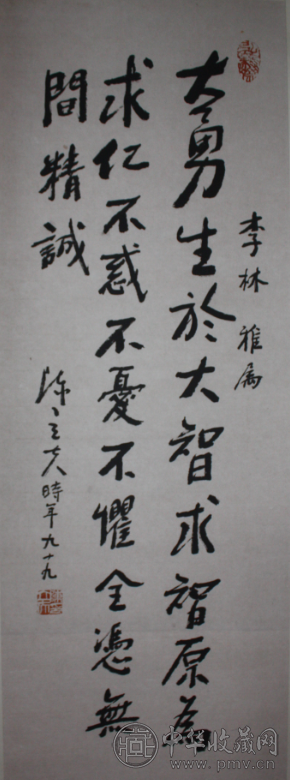 李林 雅属
大勇生於大智求智原為
求仁不惑不憂不懼全憑無
間精誠
陳立夫時年九十九
中华收藏网
www.pmv.cn